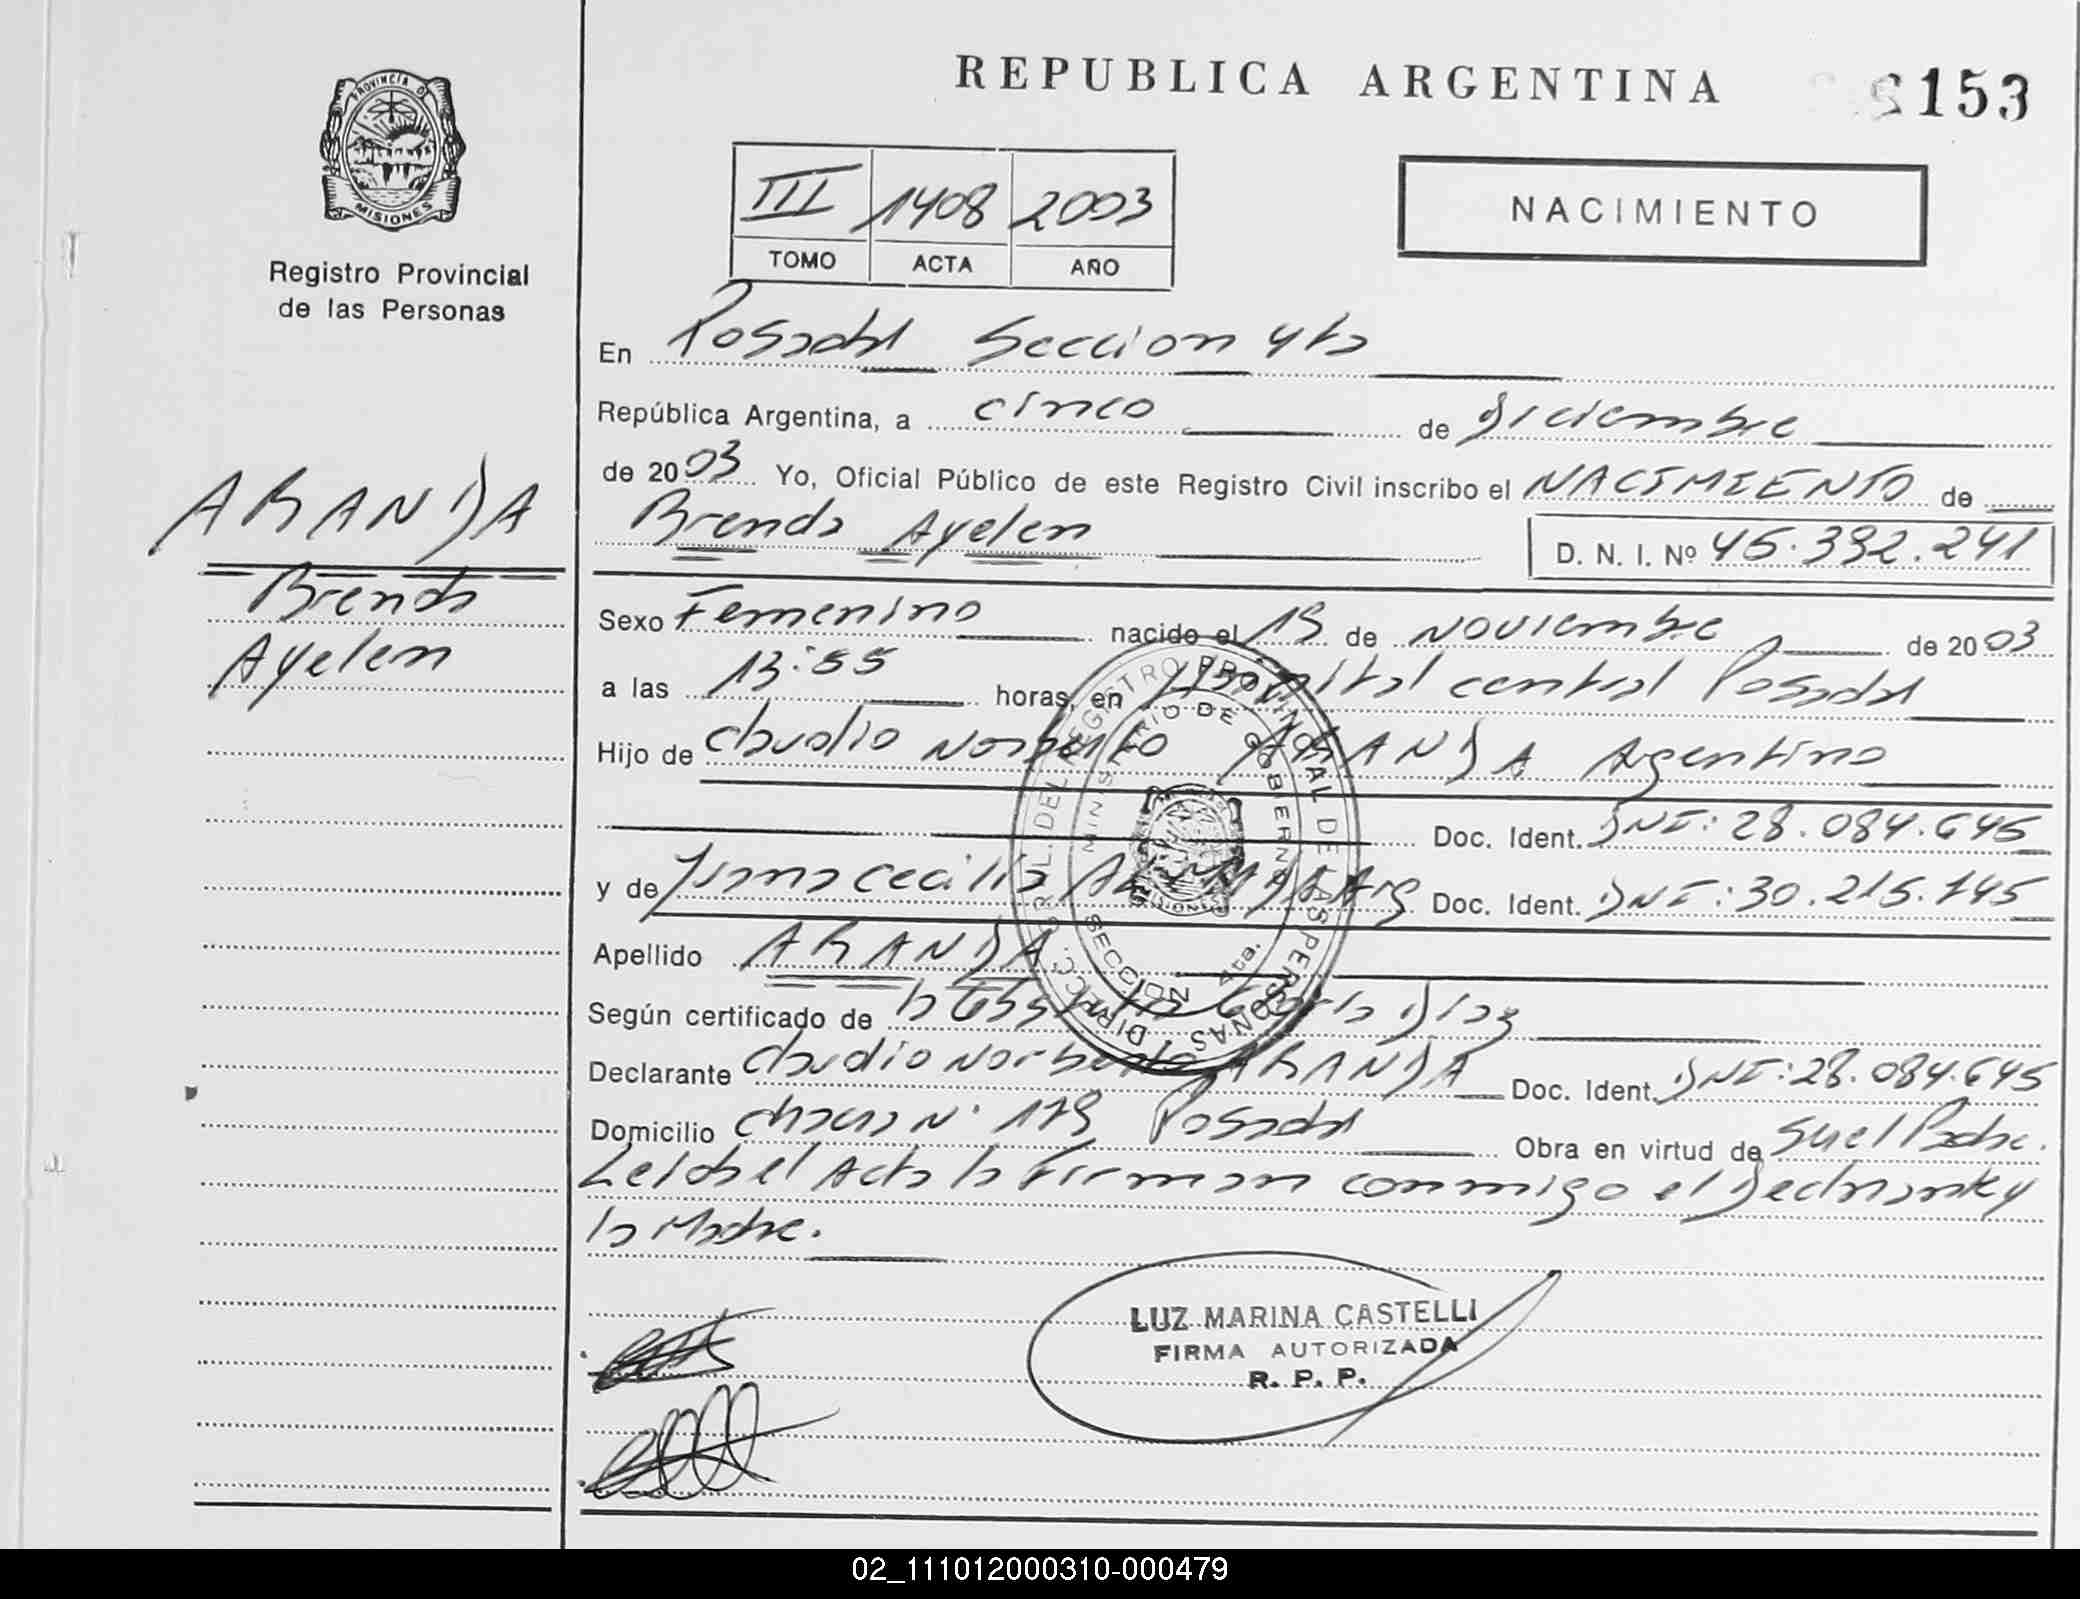 REPUBLICA ARGENTINA
153
PROVINCIA DE
MISIONES
Registro Provincial
de las Personas
III 1408 2003
TOMO ACTA AÑO
NACIMIENTO
ARANDA
Brenda
Ayelen
En Posadas Seccion 4ta
República Argentina, a cinco de Diciembre
de 2003 Yo, Oficial Público de este Registro Civil inscribo el NACIMIENTO de
Brenda Ayelen D. N. I. Nº 45.392.241
Sexo Femenino nacido el 19 de Noviembre de 2003
a las 13:55 horas, en Hospital central Posadas
Hijo de Claudio Norberto ARANDA Argentino
Doc. Ident. DNI: 28.084.645
y de Juana Cecilia Arg Doc. Ident. DNI: 30.215.145
Apellido ARANDA
Según certificado de la Obst Carla Diaz
Declarante Claudio Norberto ARANDA Doc. Ident. DNI: 28.084.645
Domicilio Chacra N° 179 Posadas Obra en virtud de Ser el Padre.
Leida el Acta la Firman conmigo el Declarante y
la Madre.
DIRECC. GRAL. DEL REGISTRO PROVINCIAL DE LAS PERSONAS
MINISTERIO DE GOBIERNO
SECCION 4ta.
MISIONES
LUZ MARINA CASTELLI
FIRMA AUTORIZADA
R. P. P.
02_111012000310-000479